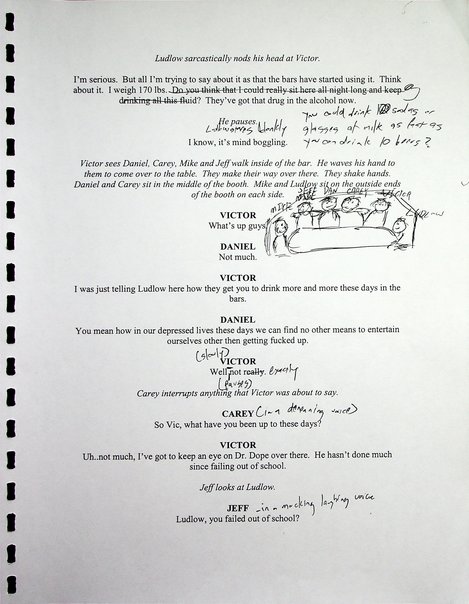 Ludlow sarcastically nods his head at Victor.
I'm serious. But all I'm trying to say about it as that the bars have started using it. Think
about it. I weigh 170 lbs. Do you think that I could really sit here all night long and keep
drinking all this fluid? They've got that drug in the alcohol now.
you could drink 10 sodas or
He pauses.
Ludlow blankly
glasses of milk as fast as
I know, it's mind boggling.
you can drink 10 beers?
Victor sees Daniel, Carey, Mike and Jeff walk inside of the bar. He waves his hand to
them to come over to the table. They make their way over there. They shake hands.
Daniel and Carey sit in the middle of the booth. Mike and Ludlow sit on the outside ends
of the booth on each side.
JEFF DAN CAREY VICTOR
MIKE
LUDLOW
VICTOR
What's up guys
DANIEL
Not much.
VICTOR
I was just telling Ludlow here how they get you to drink more and more these days in the
bars.
DANIEL
You mean how in our depressed lives these days we can find no other means to entertain
ourselves other then getting fucked up.
(slowly)
VICTOR
Well not really. Exactly
(pauses)
Carey interrupts anything that Victor was about to say.
CAREY (in a demeaning voice)
So Vic, what have you been up to these days?
VICTOR
Uh..not much, I've got to keep an eye on Dr. Dope over there. He hasn't done much
since failing out of school.
Jeff looks at Ludlow.
JEFF - in a mocking laughing voice
Ludlow, you failed out of school?